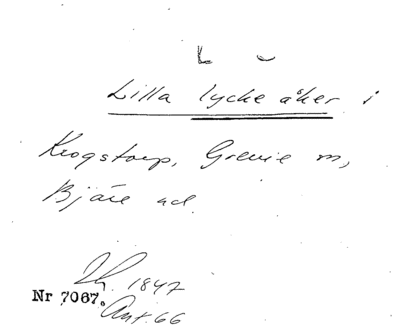 L ⌣
Lilla lycke åker i
Krogstorp, Grevie sn,
Bjäre hd
1847
Nr 7067. Ant. 66